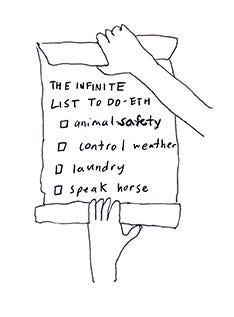 THE INFINITE
LIST TO DO-ETH
animal safety
control weather
laundry
speak horse